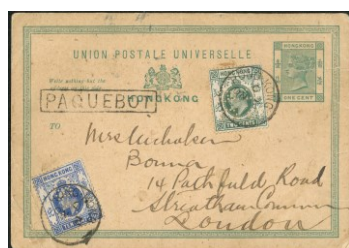 UNION POSTALE UNIVERSELLE
HONGKONG
PAQUEBOT
HONGKONG
ONE CENT
TO
Mrs Nicholson
14 Pathfield Road
Streatham Common
London
HONG KONG